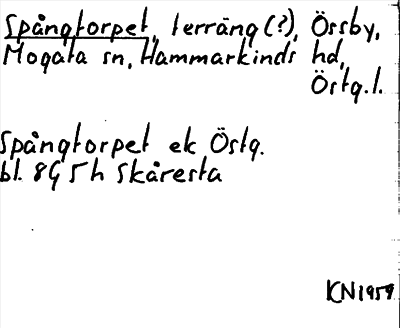 Spångtorpet, terräng(?), Örsby,
Mogata sn, Hammarkinds hd,
Östg.l.
Spångtorpet ek Östg.
bl. 8G 5h Skåresta
KN1959